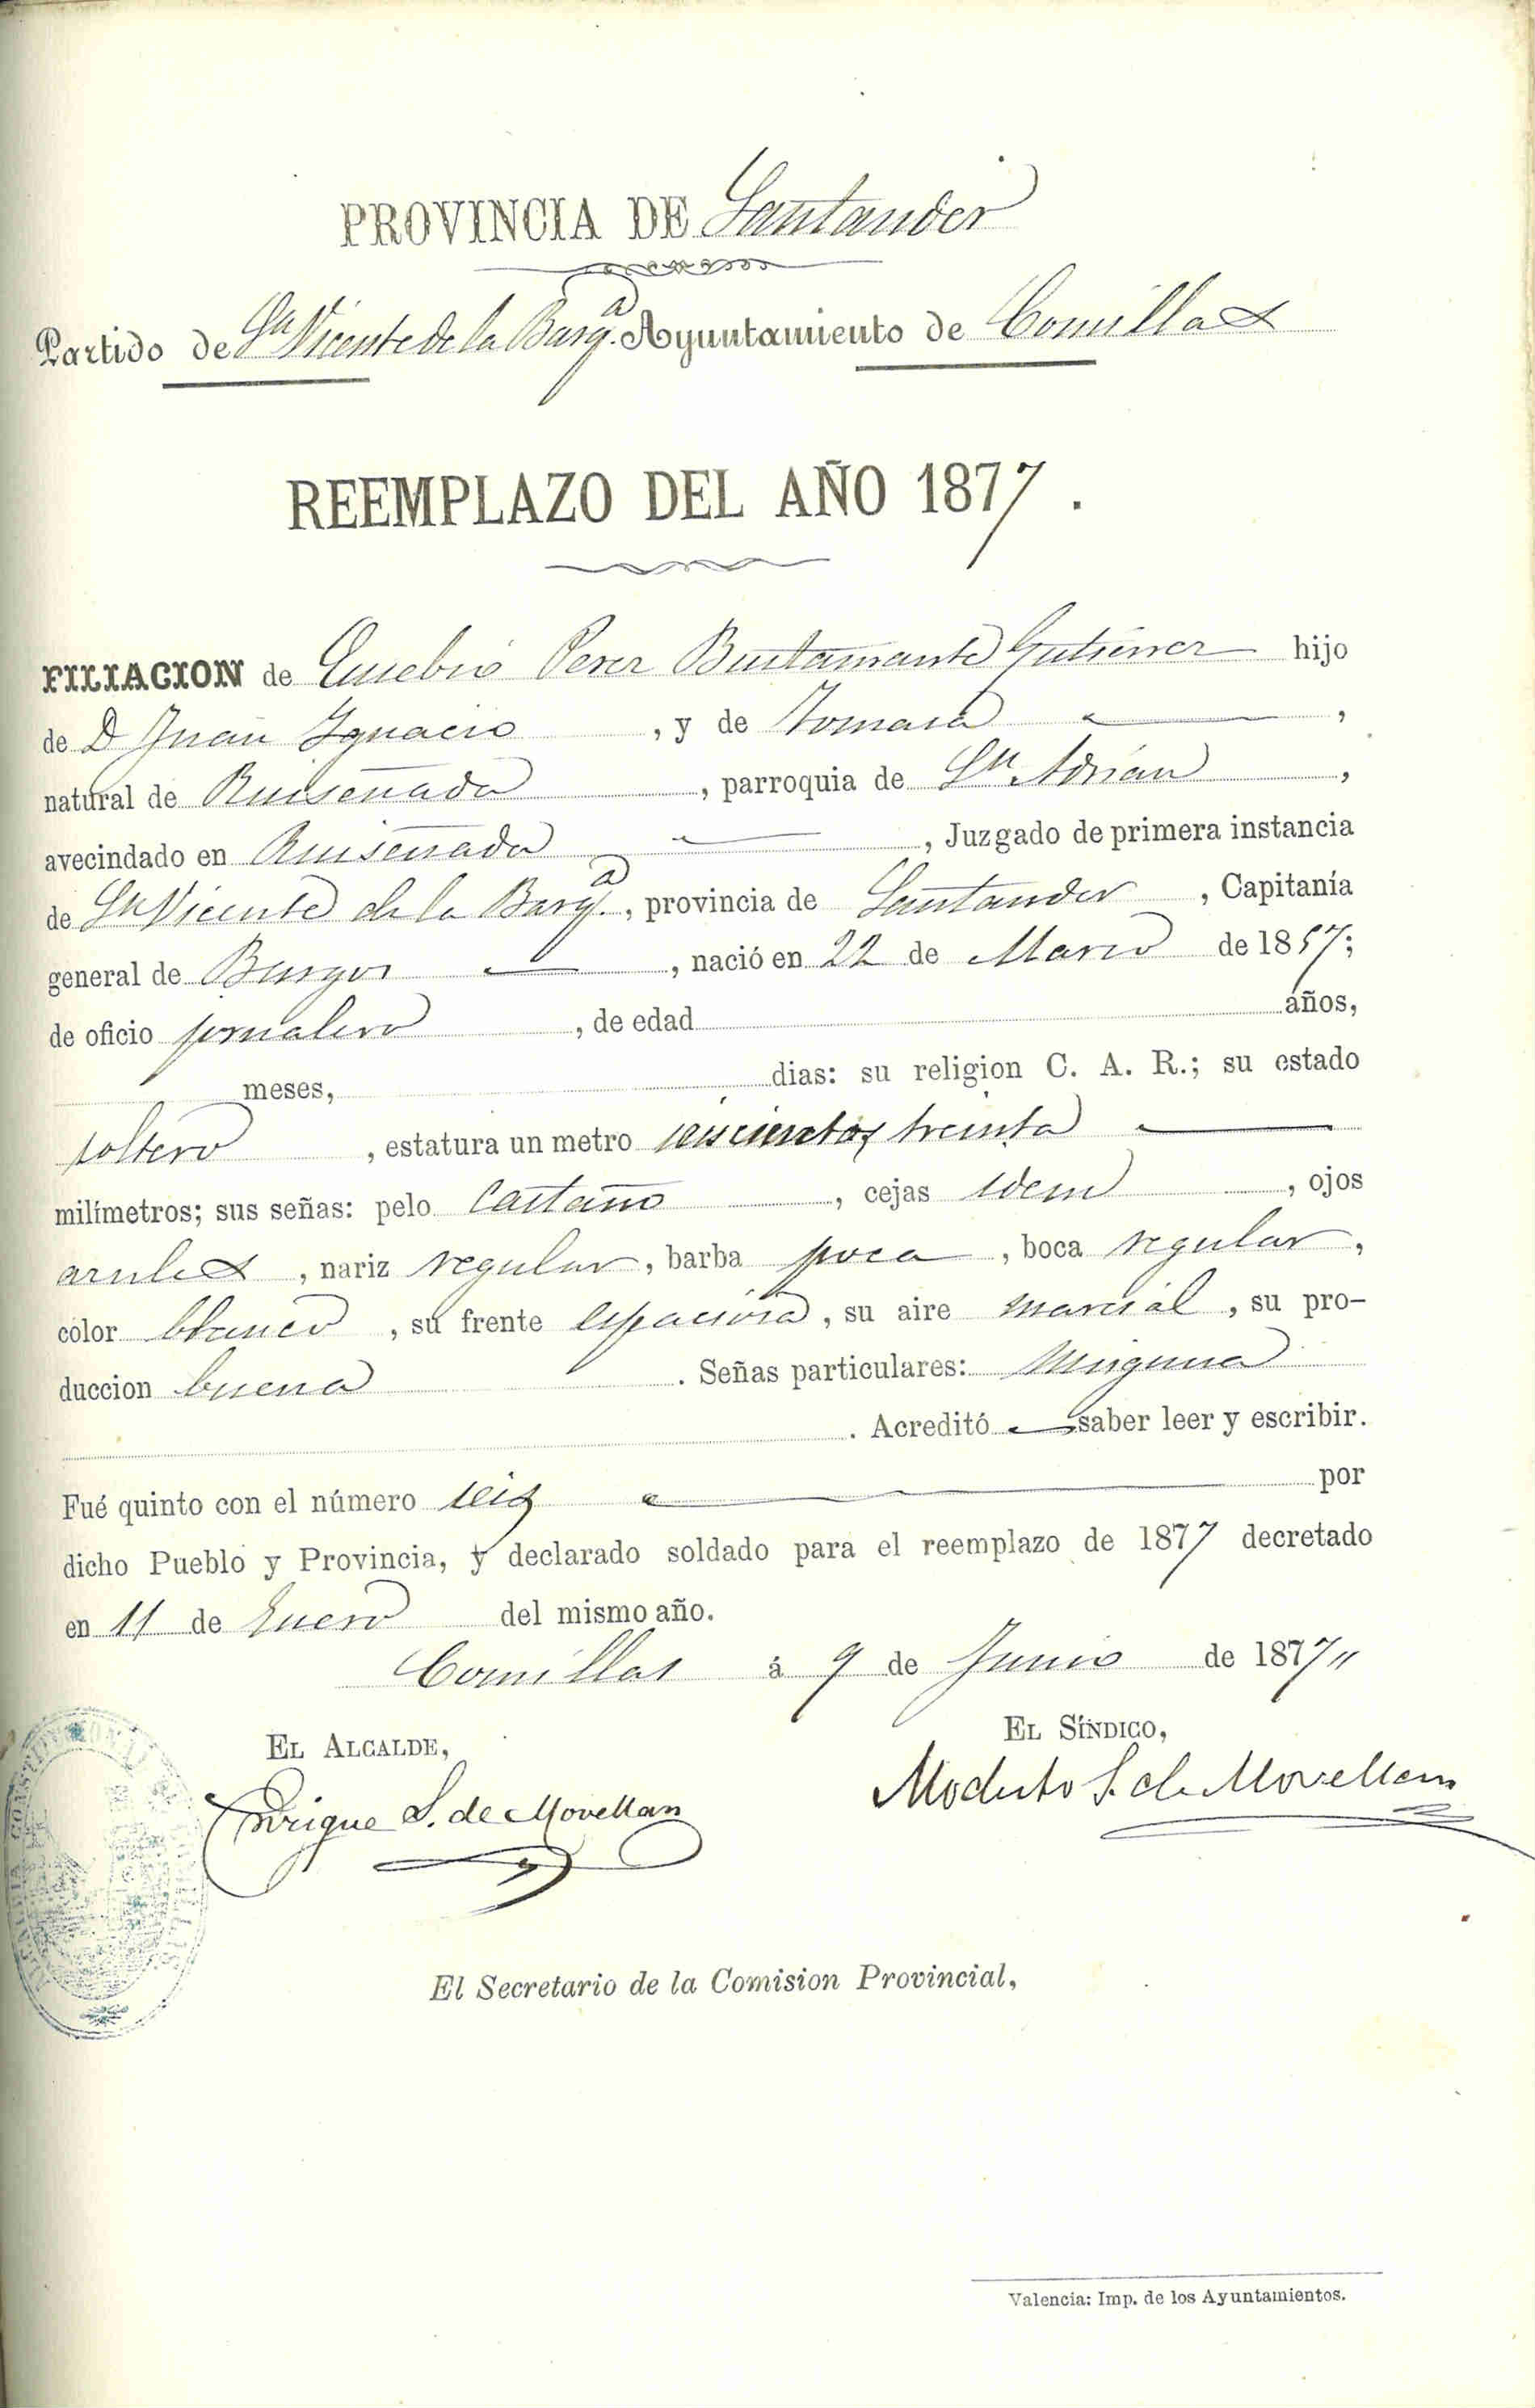 PROVINCIA DE Santander
Partido de Sn Vicente de la Barqa. Ayuntamiento de Comillas
REEMPLAZO DEL AÑO 1877.
FILIACION de Eusebio Perez Bustamante Gutierrez hijo
de D Juan Ignacio, y de Tomasa,
natural de Ruiseñada, parroquia de Sn Adrian,
avecindado en Ruiseñada, Juzgado de primera instancia
de Sn Vicente de la Barqa., provincia de Santander, Capitanía
general de Burgos, nació en 22 de Marzo de 1857;
de oficio jornalero, de edad años,
meses, dias: su religion C. A. R.; su estado
soltero, estatura un metro seiscientos treinta
milímetros; sus señas: pelo Castaño, cejas idem, ojos
azules, nariz regular, barba poca, boca regular,
color blanco, su frente espaciosa, su aire marcial, su pro-
duccion buena. Señas particulares: Ninguna
. Acreditó saber leer y escribir.
Fué quinto con el número seis por
dicho Pueblo y Provincia, y declarado soldado para el reemplazo de 1877 decretado
en 11 de Enero del mismo año.
Comillas á 9 de Junio de 1877
EL ALCALDE,
EL SÍNDICO,
Enrique S. de Movellan
Modesto S. de Movellan
El Secretario de la Comision Provincial,
Valencia: Imp. de los Ayuntamientos.